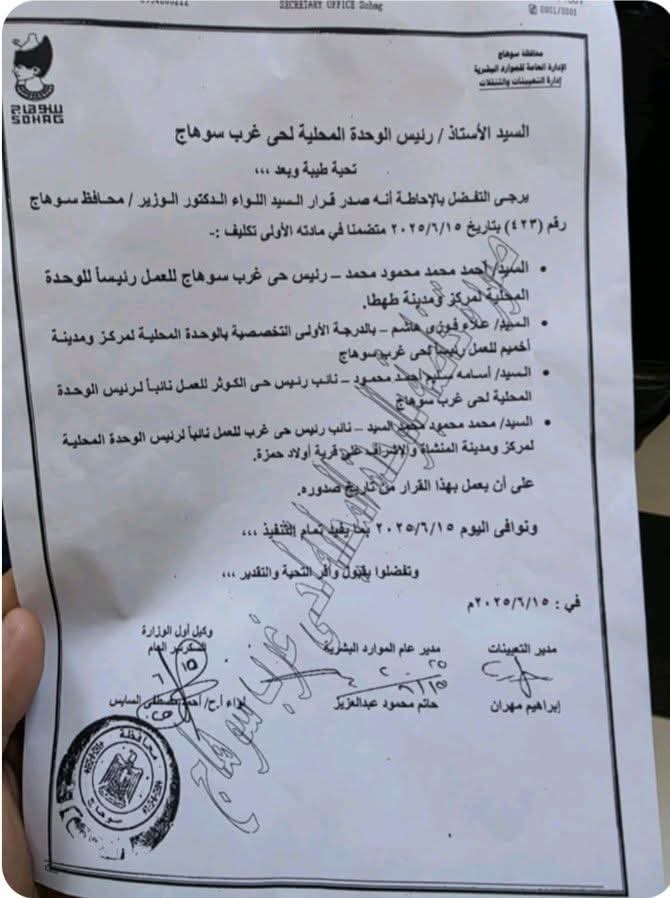 SECRETARY OFFICE Sohag
0001/0001
سوهاج
SOHAG
محافظة سوهاج
الإدارة العامة للموارد البشرية
إدارة التعيينات والتنقلات
السيد الأستاذ / رئيس الوحدة المحلية لحى غرب سوهاج
تحية طيبة وبعد ,,,
يرجى التفضل بالإحاطة أنه صدر قرار السيد اللواء الدكتور الوزير / محافظ سوهاج
رقم (٤٢٣) بتاريخ ٢٠٢٥/٦/١٥ متضمنا في مادته الأولى تكليف :-
• السيد/ أحمد محمد محمود محمد – رئيس حى غرب سوهاج للعمل رئيساً للوحدة
المحلية لمركز ومدينة طهطا.
• السيد/ علاء فوزى هاشم – بالدرجة الأولى التخصصية بالوحدة المحلية لمركز ومدينة
أخميم للعمل رئيساً لحى غرب سوهاج
• السيد/ أسامه سيد أحمد محمود – نائب رئيس حى الكوثر للعمل نائباً لرئيس الوحدة
المحلية لحى غرب سوهاج
• السيد/ محمد محمود محمد السيد – نائب رئيس حى غرب للعمل نائباً لرئيس الوحدة المحلية
لمركز ومدينة المنشاة والاشراف على قرية أولاد حمزة.
على أن يعمل بهذا القرار من تاريخ صدوره.
ونوافى اليوم ٢٠٢٥/٦/١٥ بما يفيد تمام التنفيذ ,,,
وتفضلوا بقبول وافر التحية والتقدير ,,,
في : ٢٠٢٥/٦/١٥م
مدير التعيينات
مدير عام الموارد البشرية
وكيل أول الوزارة
السكرتير العام
إبراهيم مهران
حاتم محمود عبدالعزيز
لواء أ.ح/ أحمد مصطفى السايس
محافظة
سوهاج